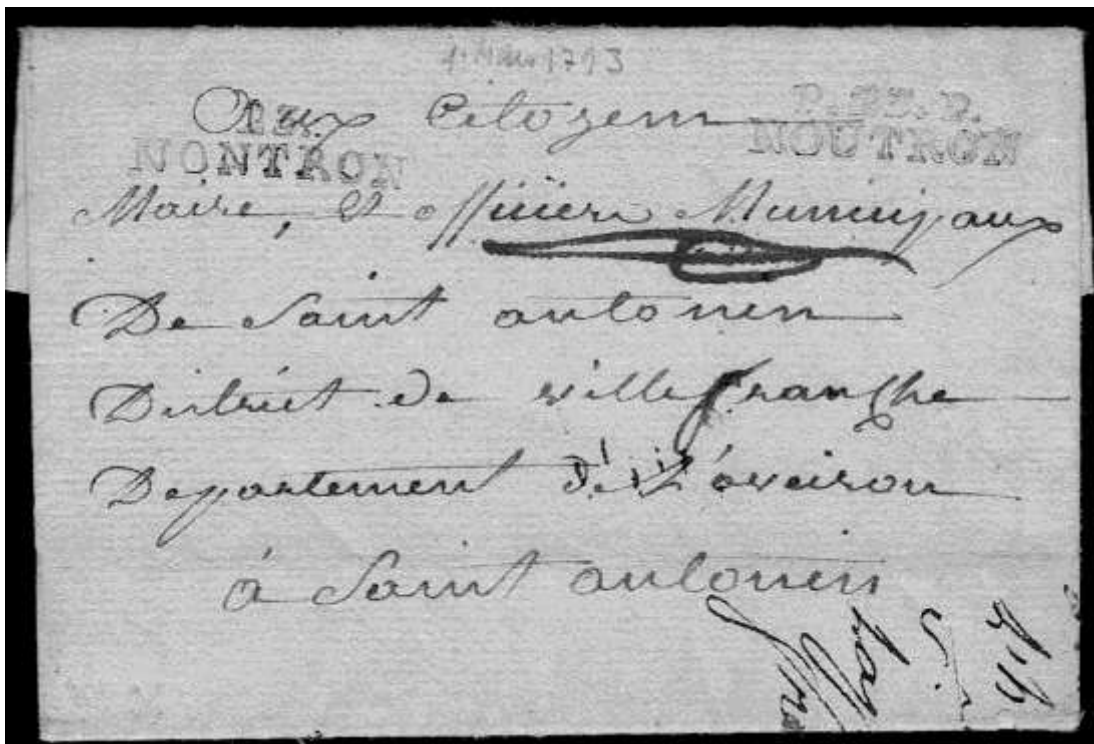 1. Mars 1793
Aux Citoyens
P.23.P.
NOUTRON
23.
NONTRON
Maire, et officiers Municipaux
De Saint antonin
District de villefranche
Departement de L'aveiron
à Saint antonin